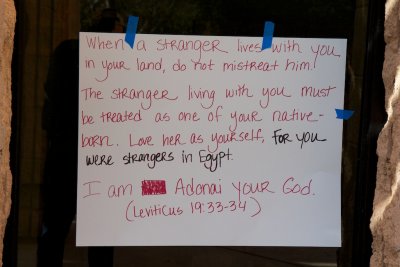 When a stranger lives with you
in your land, do not mistreat him.
The stranger living with you must
be treated as one of your native-
born. Love her as yourself, for you
were strangers in Egypt.
I am Adonai your God.
(Leviticus 19:33-34)